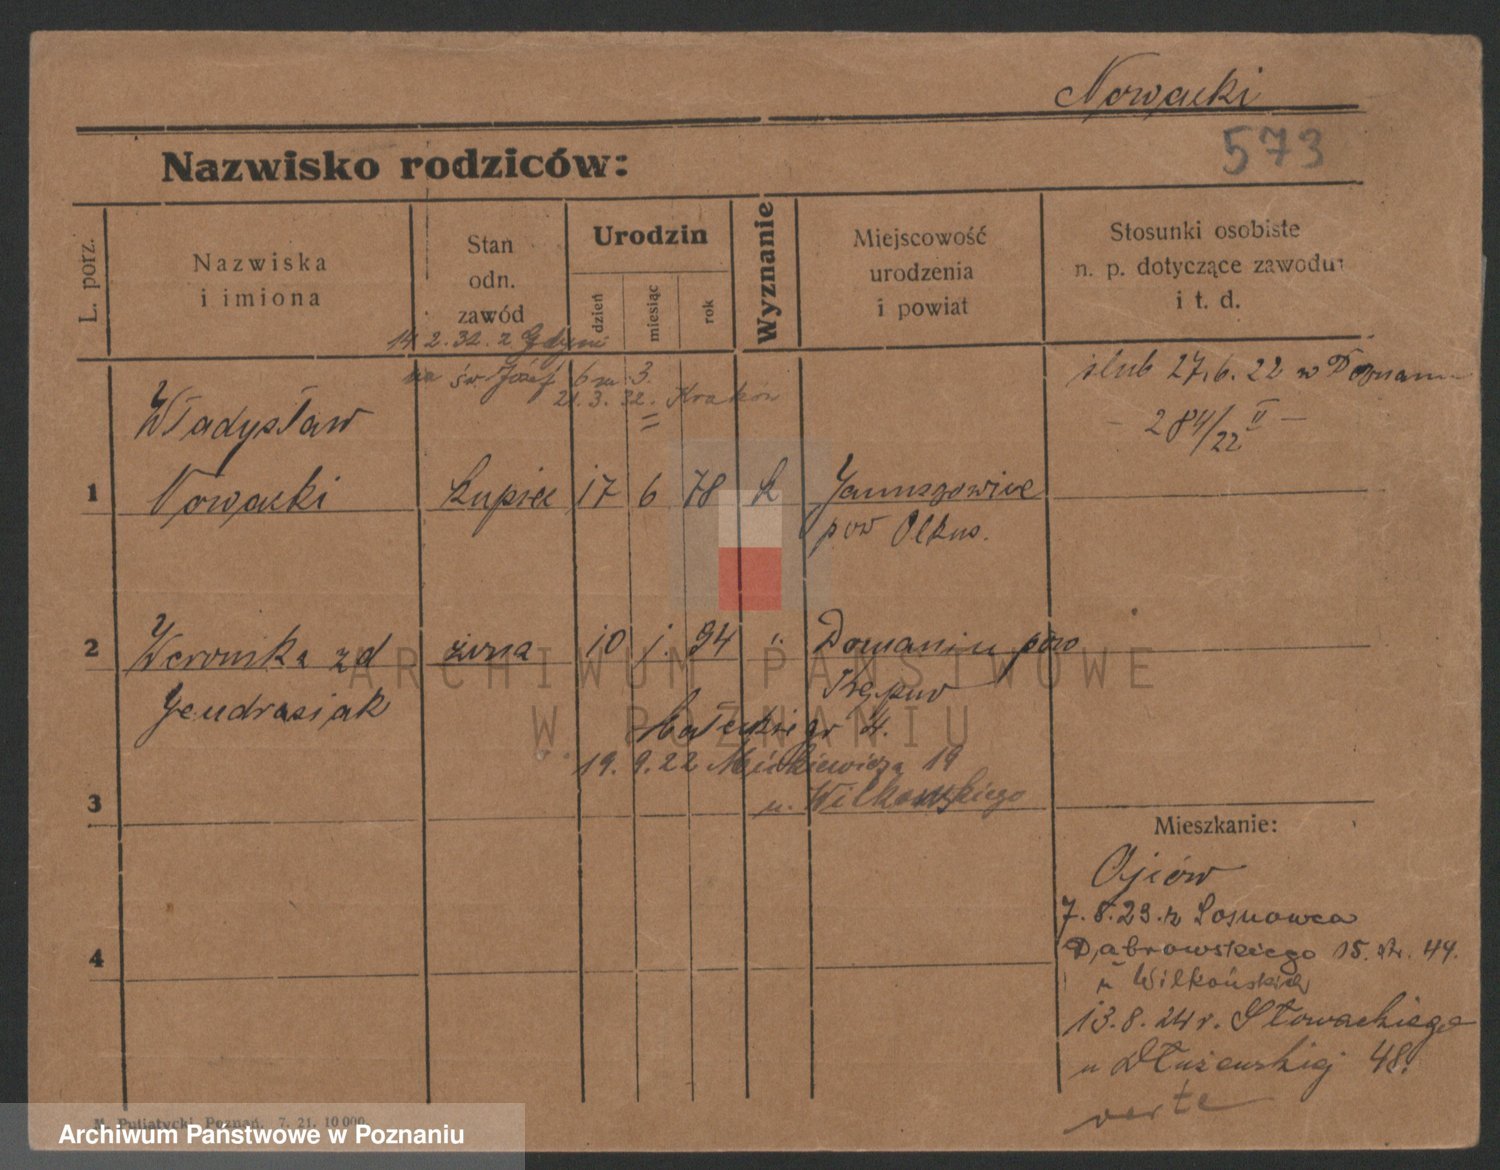 Nowacki
573
Nazwisko rodziców:
L. porz.
Nazwiska
i imiona
Stan
odn.
zawód
Urodzin
dzień
miesiąc
rok
Wyznanie
Miejscowość
urodzenia
i powiat
Stosunki osobiste
n. p. dotyczące zawodu
i t. d.
14.2.32. z Gdyni
na św. Józef 6 m 3.
21.3.32. Kraków
ślub 27.6.22 w Poznaniu
- 284/22 II -
Władysław
1 Nowacki kupiec 17 6 78 k
pow Olkus.
2 Weronika zd żona 10 1. 94 " Domanin pow
Jendrasiak
Kępno
Małeckiego 4.
19.9.22 Mickiewicza 19
u. Wilkońskiego
3
Mieszkanie:
Ojców
7.8.23. z Sosnowca
4 Dąbrowskiego 15. 44.
u Wilkońskich
13.8.24 r. Słowackiego
u Dłużewskiej 48.
verte
M. Putiatycki, Poznań. 7. 21. 10000
ARCHIWUM PAŃSTWOWE
W POZNANIU
Archiwum Państwowe w Poznaniu